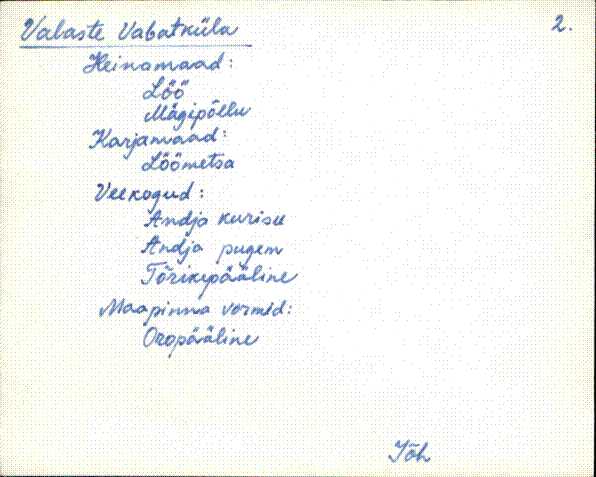 Valaste Vabatküla 2.
Heinamaad:
Löö
Mägipõllu
Karjamaad:
Löömetsa
Veekogud:
Andja kurisu
Andja pugem
Tõrikepääline
Maapinna vormid:
Oropääline
Jõh